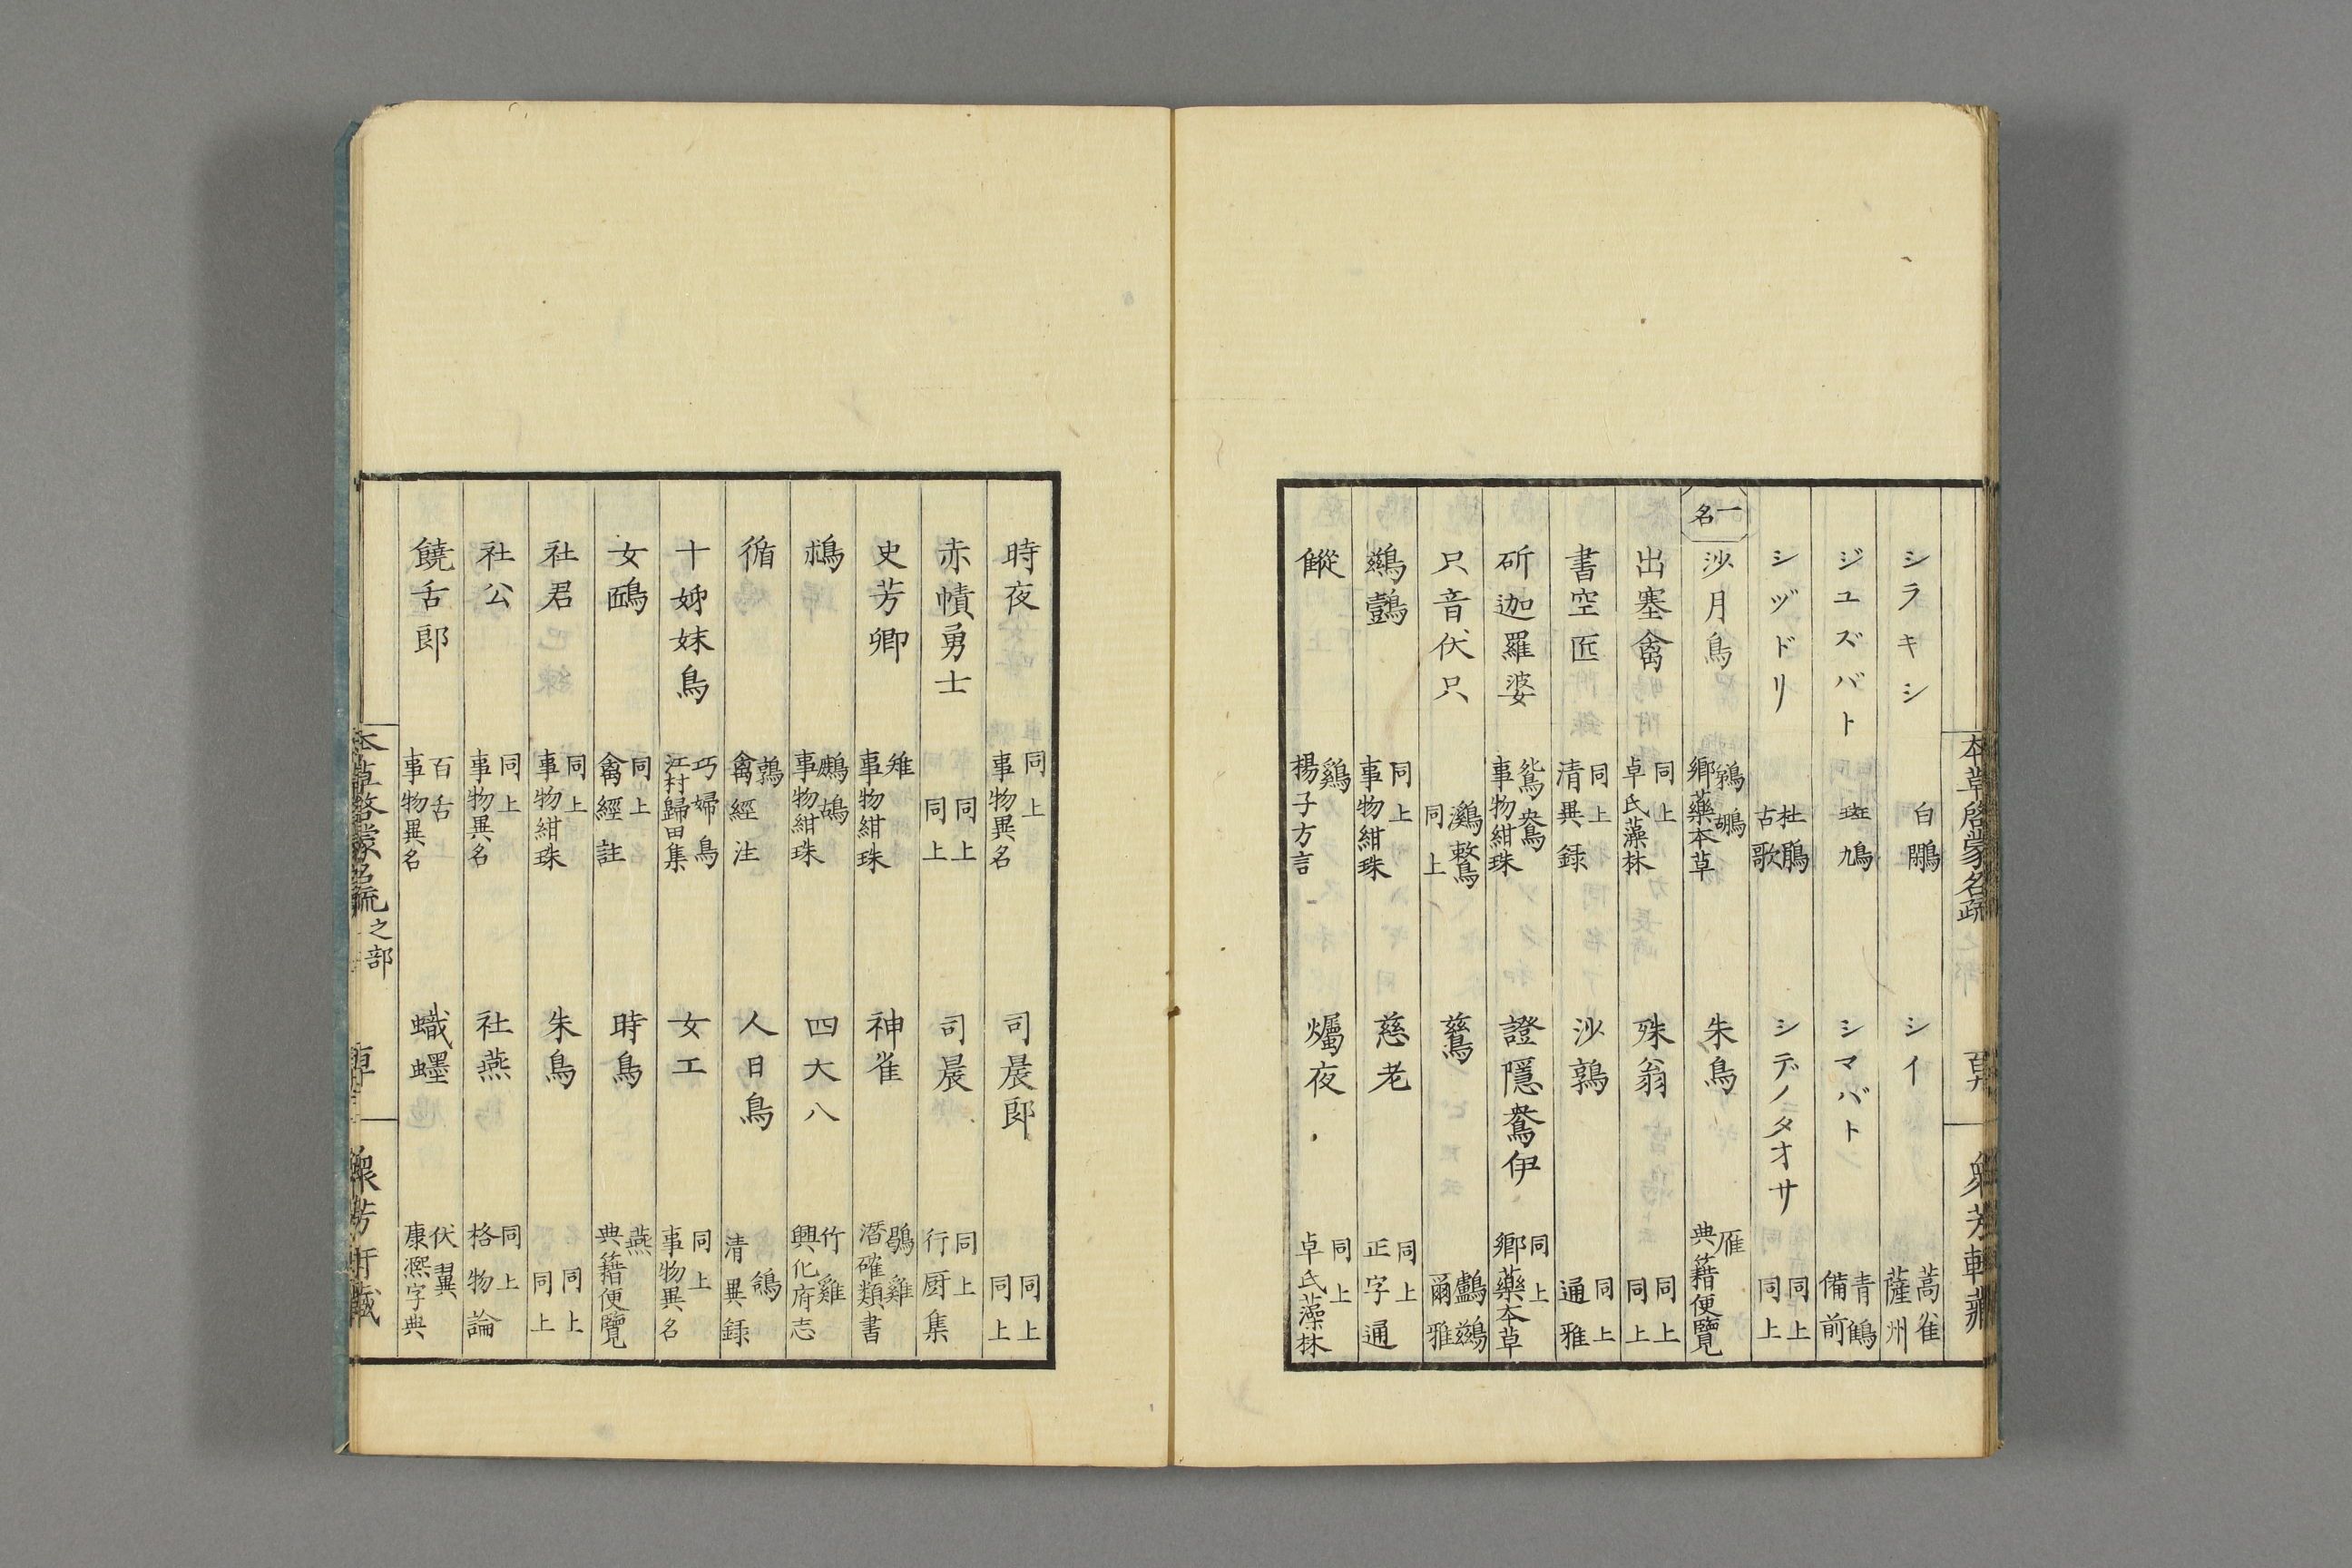 本草啓蒙名疏
衆芳軒藏
シラキシ 白鷴 シイ 蒿雀 薩州
ジユズバト 斑鳩 シマバト 青鶴 備前
シヅドリ 杜鵑 古歌 シデノタオサ 同上 同上
一名 沙月鳥 鵜鶘 鄉藥本草 朱鳥 雁 典籍便覽
出塞禽 同上 卓氏藻林 殊翁 同上 同上
書空匠 同上 清異録 沙鶉 同上 通雅
斫迦羅婆 鴛鴦 事物紺珠 證隱鴦伊 同上 鄉藥本草
只音伏只 同上 鷀 鸕鷀 爾雅
鷀 同上 事物紺珠 慈老 同上 正字通
雞 楊子方言 燭夜 同上 卓氏藻林
時夜 同上 事物異名 司晨郎 同上 同上
赤幘勇士 同上 同上 司晨 同上 行厨集
史芳卿 雉 事物紺珠 神雀 鶡雞 潛確類書
鷓鴣 事物紺珠 四大八 竹雞 興化府志
循 鶉 禽經注 人日鳥 鴿 清異録
十姊妹鳥 巧婦鳥 江村歸田集 女工 同上 事物異名
女鴟 同上 禽經註 時鳥 燕 典籍便覽
社君 同上 事物紺珠 朱鳥 同上 同上
社公 同上 事物異名 社燕 同上 格物論
饒舌郎 百舌 事物異名 蟙䘃 伏翼 康熙字典
本草啓蒙名疏 之部
衆芳軒藏